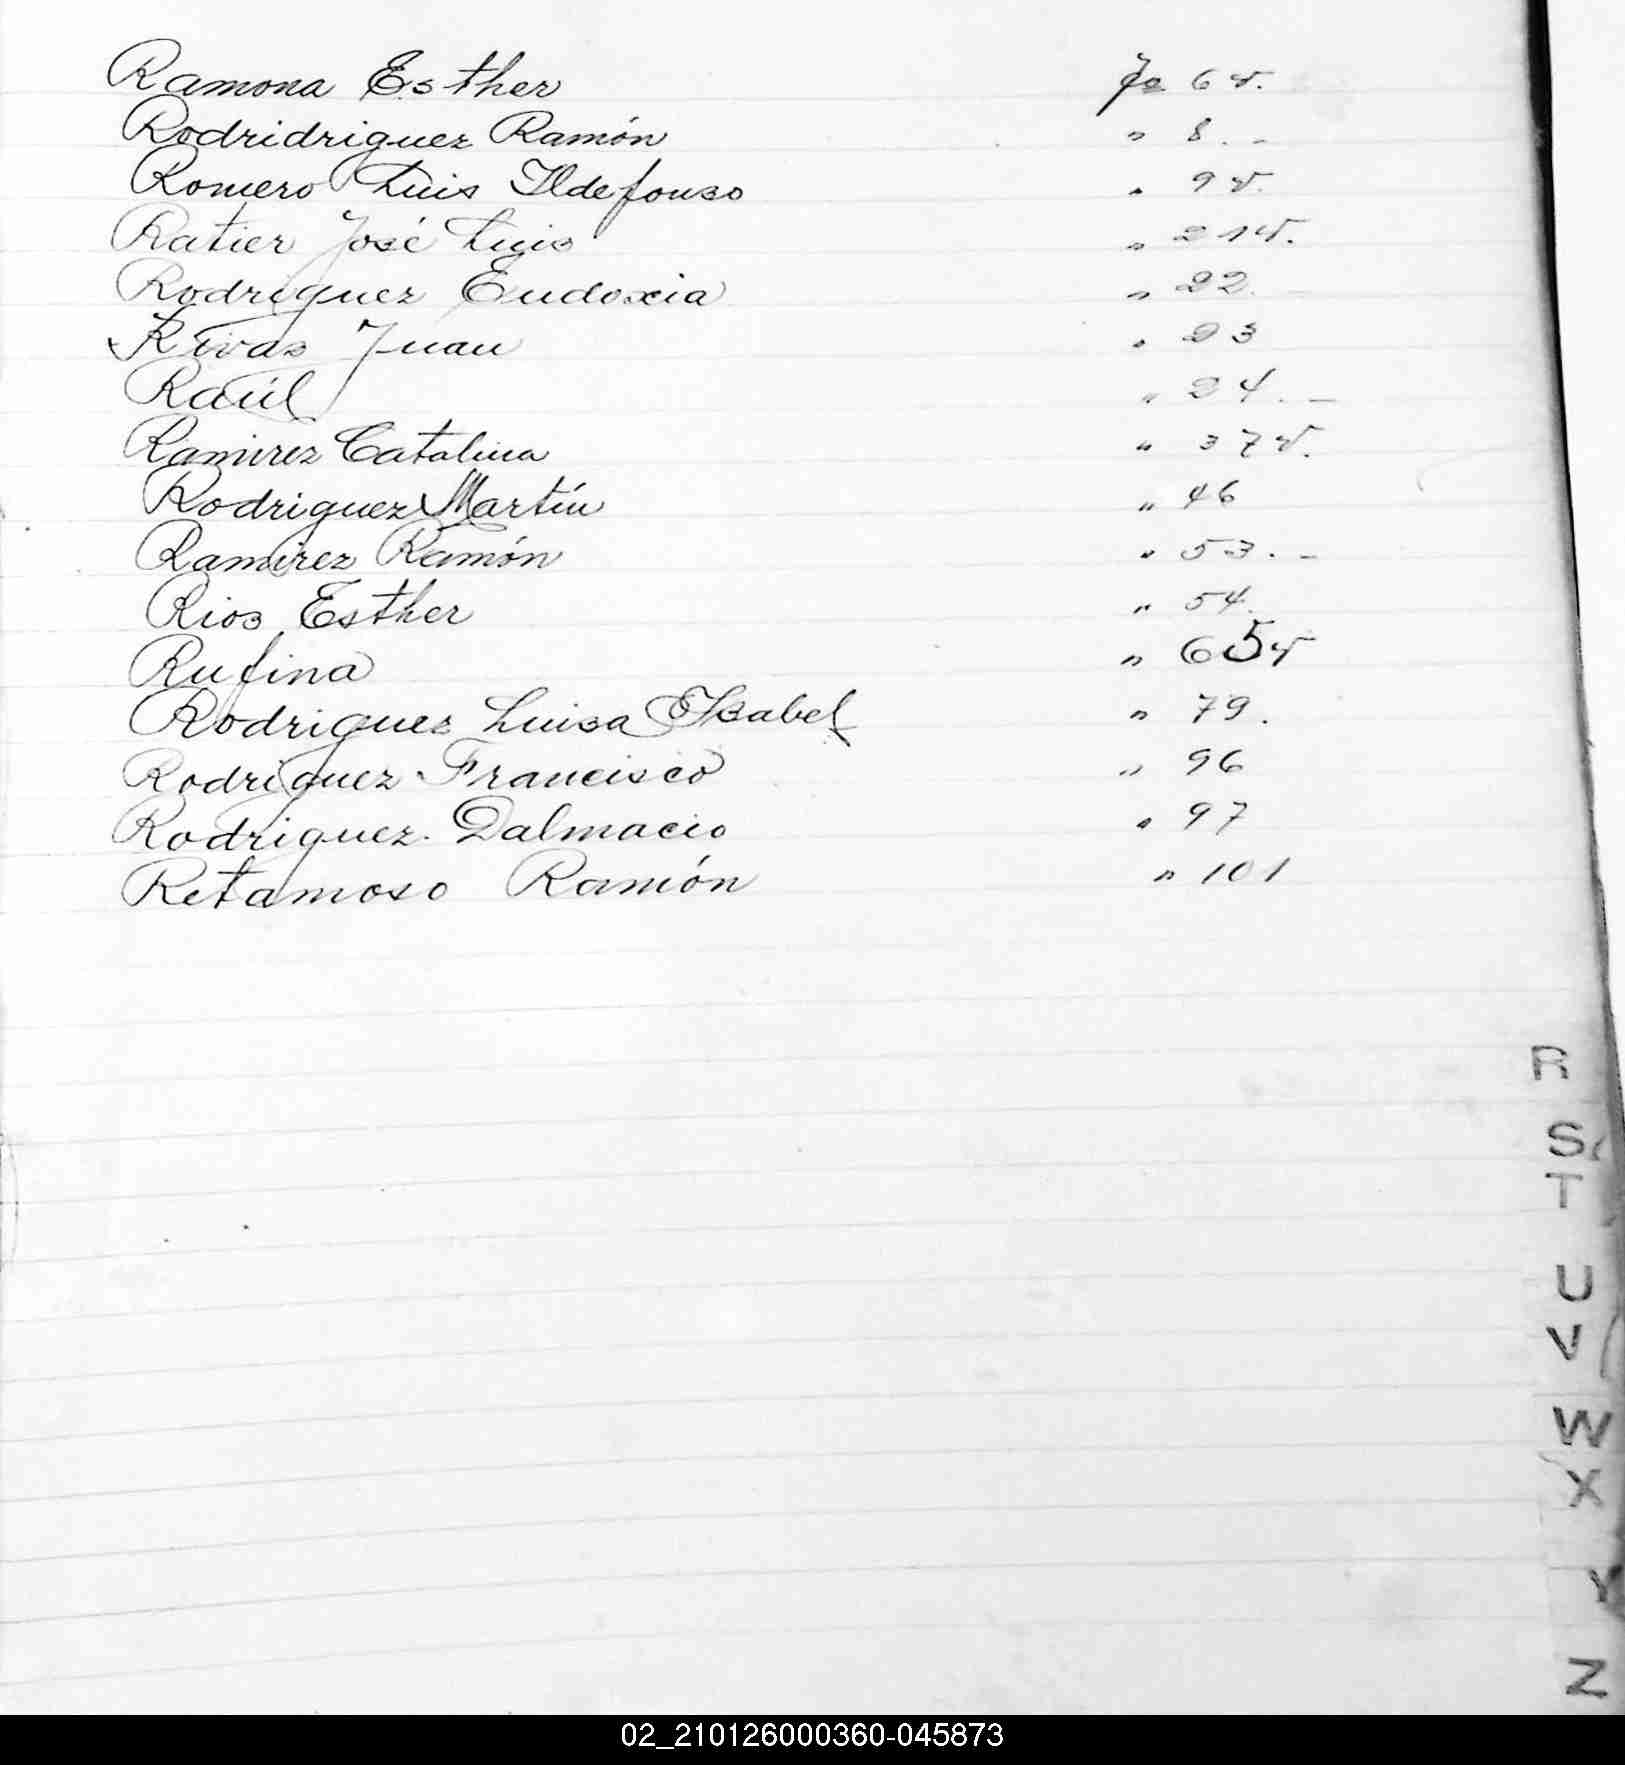 Ramona Esther fo 6 v.
Rodridriguez Ramón " 8. -
Romero Luis Ildefonso " 9 v.
Ratier José Luis " 21 v.
Rodriguez Eudoxia " 22. -
Rivas Juan " 23
Raúl " 24. -
Ramirez Catalina " 37 v.
Rodriguez Martín " 46
Ramirez Ramón " 53. -
Rios Esther " 54.
Rufina " 65 v
Rodriguez Luisa Isabel " 79.
Rodriguez Francisco " 96
Rodriguez Dalmacio " 97
Retamoso Ramón " 101
R
S
T
U
V
W
X
Y
Z
02_210126000360-045873